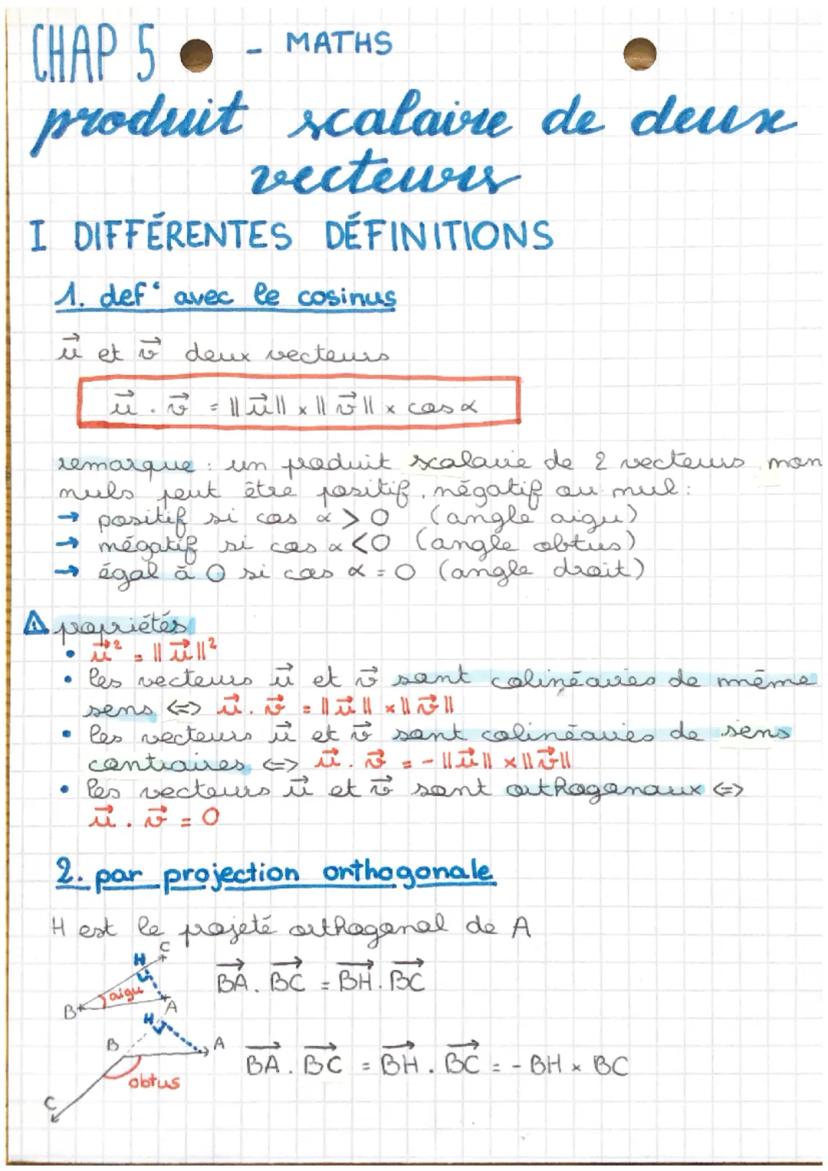 CHAP 5 - MATHS
produit scalaire de deux
vecteurs
I DIFFÉRENTES DÉFINITIONS
1. def° avec le cosinus
u⃗ et v⃗ deux vecteurs
u⃗ . v⃗ = ||u⃗|| × ||v⃗|| × cos α
remarque : un produit scalaire de 2 vecteurs non
nuls peut être positif, négatif ou nul :
→ positif si cos α > 0 (angle aigu)
→ négatif si cos α < 0 (angle obtus)
→ égal à 0 si cos α = 0 (angle droit)
⚠ popriétés
• u⃗² = ||u⃗||²
• les vecteurs u⃗ et v⃗ sont colinéaires de même
sens <=> u⃗ . v⃗ = ||u⃗|| × ||v⃗||
• les vecteurs u⃗ et v⃗ sont colinéaires de sens
contraires <=> u⃗ . v⃗ = - ||u⃗|| × ||v⃗||
• les vecteurs u⃗ et v⃗ sont orthogonaux <=>
u⃗ . v⃗ = 0
2. par projection orthogonale
H est le projeté orthogonal de A
C
H
aigu
B
A
BA⃗ . BC⃗ = BH⃗ . BC⃗
H
B
A
obtus
C
BA⃗ . BC⃗ = BH⃗ . BC⃗ = - BH × BC